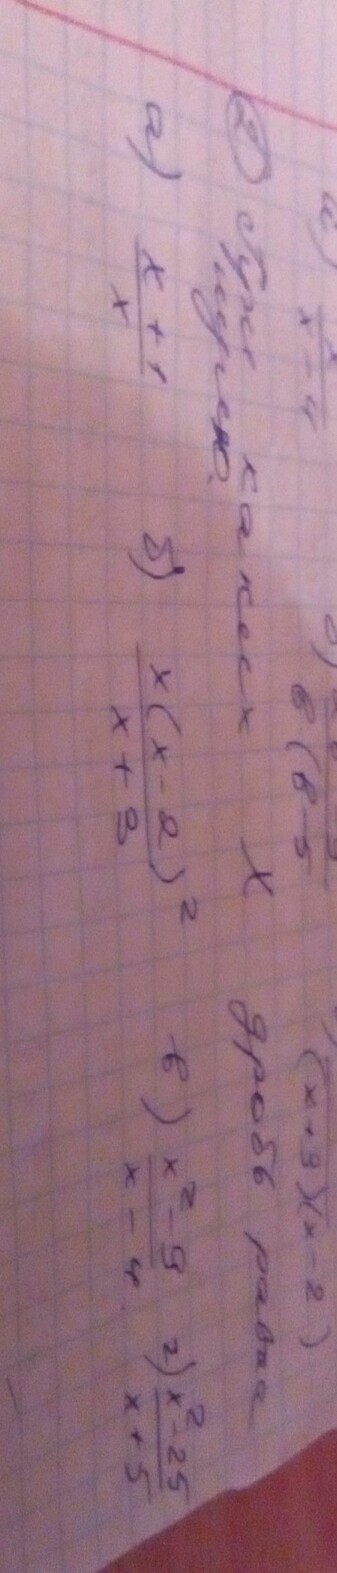 a) x / x - 4 б) / в(в-5 (x+3)(x-2)
② При каких x дробь равна
нулю?
а) x+1 / x б) x(x-2)² / x+3 в) x²-9 / x-4 г) x²-25 / x+5